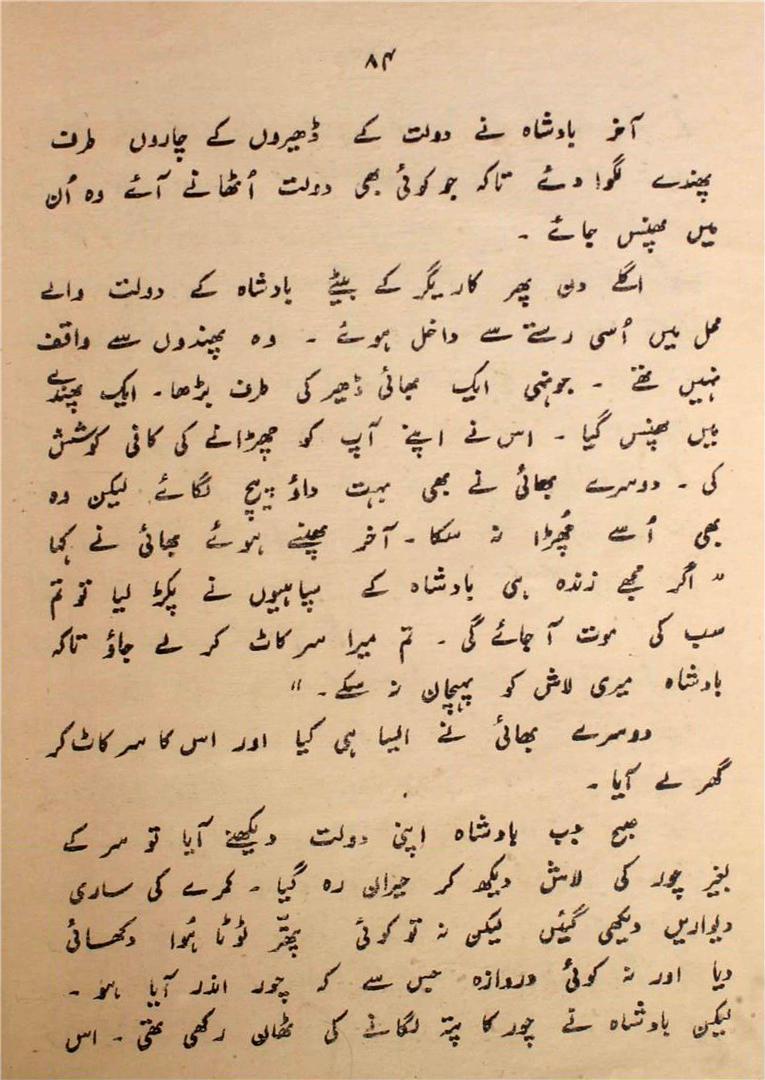 ۸۴
آخر بادشاہ نے دولت کے ڈھیروں کے چاروں طرف
پھندے لگوا دئے تاکہ جو کوئی بھی دولت اُٹھانے آئے وہ اُن
میں پھنس جائے ۔
اگلے دن پھر کاریگر کے بیٹے بادشاہ کے دولت والے
محل میں اُسی رستے سے داخل ہوئے ۔ وہ پھندوں سے واقف
نہیں تھے ۔ جونہی ایک بھائی ڈھیر کی طرف بڑھا۔ ایک پھندے
میں پھنس گیا ۔ اس نے اپنے آپ کو چھڑانے کی کافی کوشش
کی ۔ دوسرے بھائی نے بھی بہت داؤ پیچ لگائے لیکن وہ
بھی اُسے چُھڑا نہ سکا ۔ آخر پھنسے ہوئے بھائی نے کہا
" اگر مجھے زندہ ہی بادشاہ کے سپاہیوں نے پکڑ لیا تو تم
سب کی موت آ جائے گی ۔ تم میرا سر کاٹ کر لے جاؤ تاکہ
بادشاہ میری لاش کو پہچان نہ سکے ۔ "
دوسرے بھائی نے ایسا ہی کیا اور اس کا سر کاٹ کر
گھر لے آیا ۔
صبح جب بادشاہ اپنی دولت دیکھنے آیا تو سر کے
بغیر چور کی لاش دیکھ کر حیران رہ گیا ۔ کمرے کی ساری
دیواریں دیکھی گئیں لیکن نہ تو کوئی پتھّر ٹوٹا ہُوا دکھائی
دیا اور نہ کوئی دروازہ جس سے کہ چور اندر آیا ہو ۔
لیکن بادشاہ نے چور کا پتہ لگانے کی ٹھان رکھی تھی ۔ اس